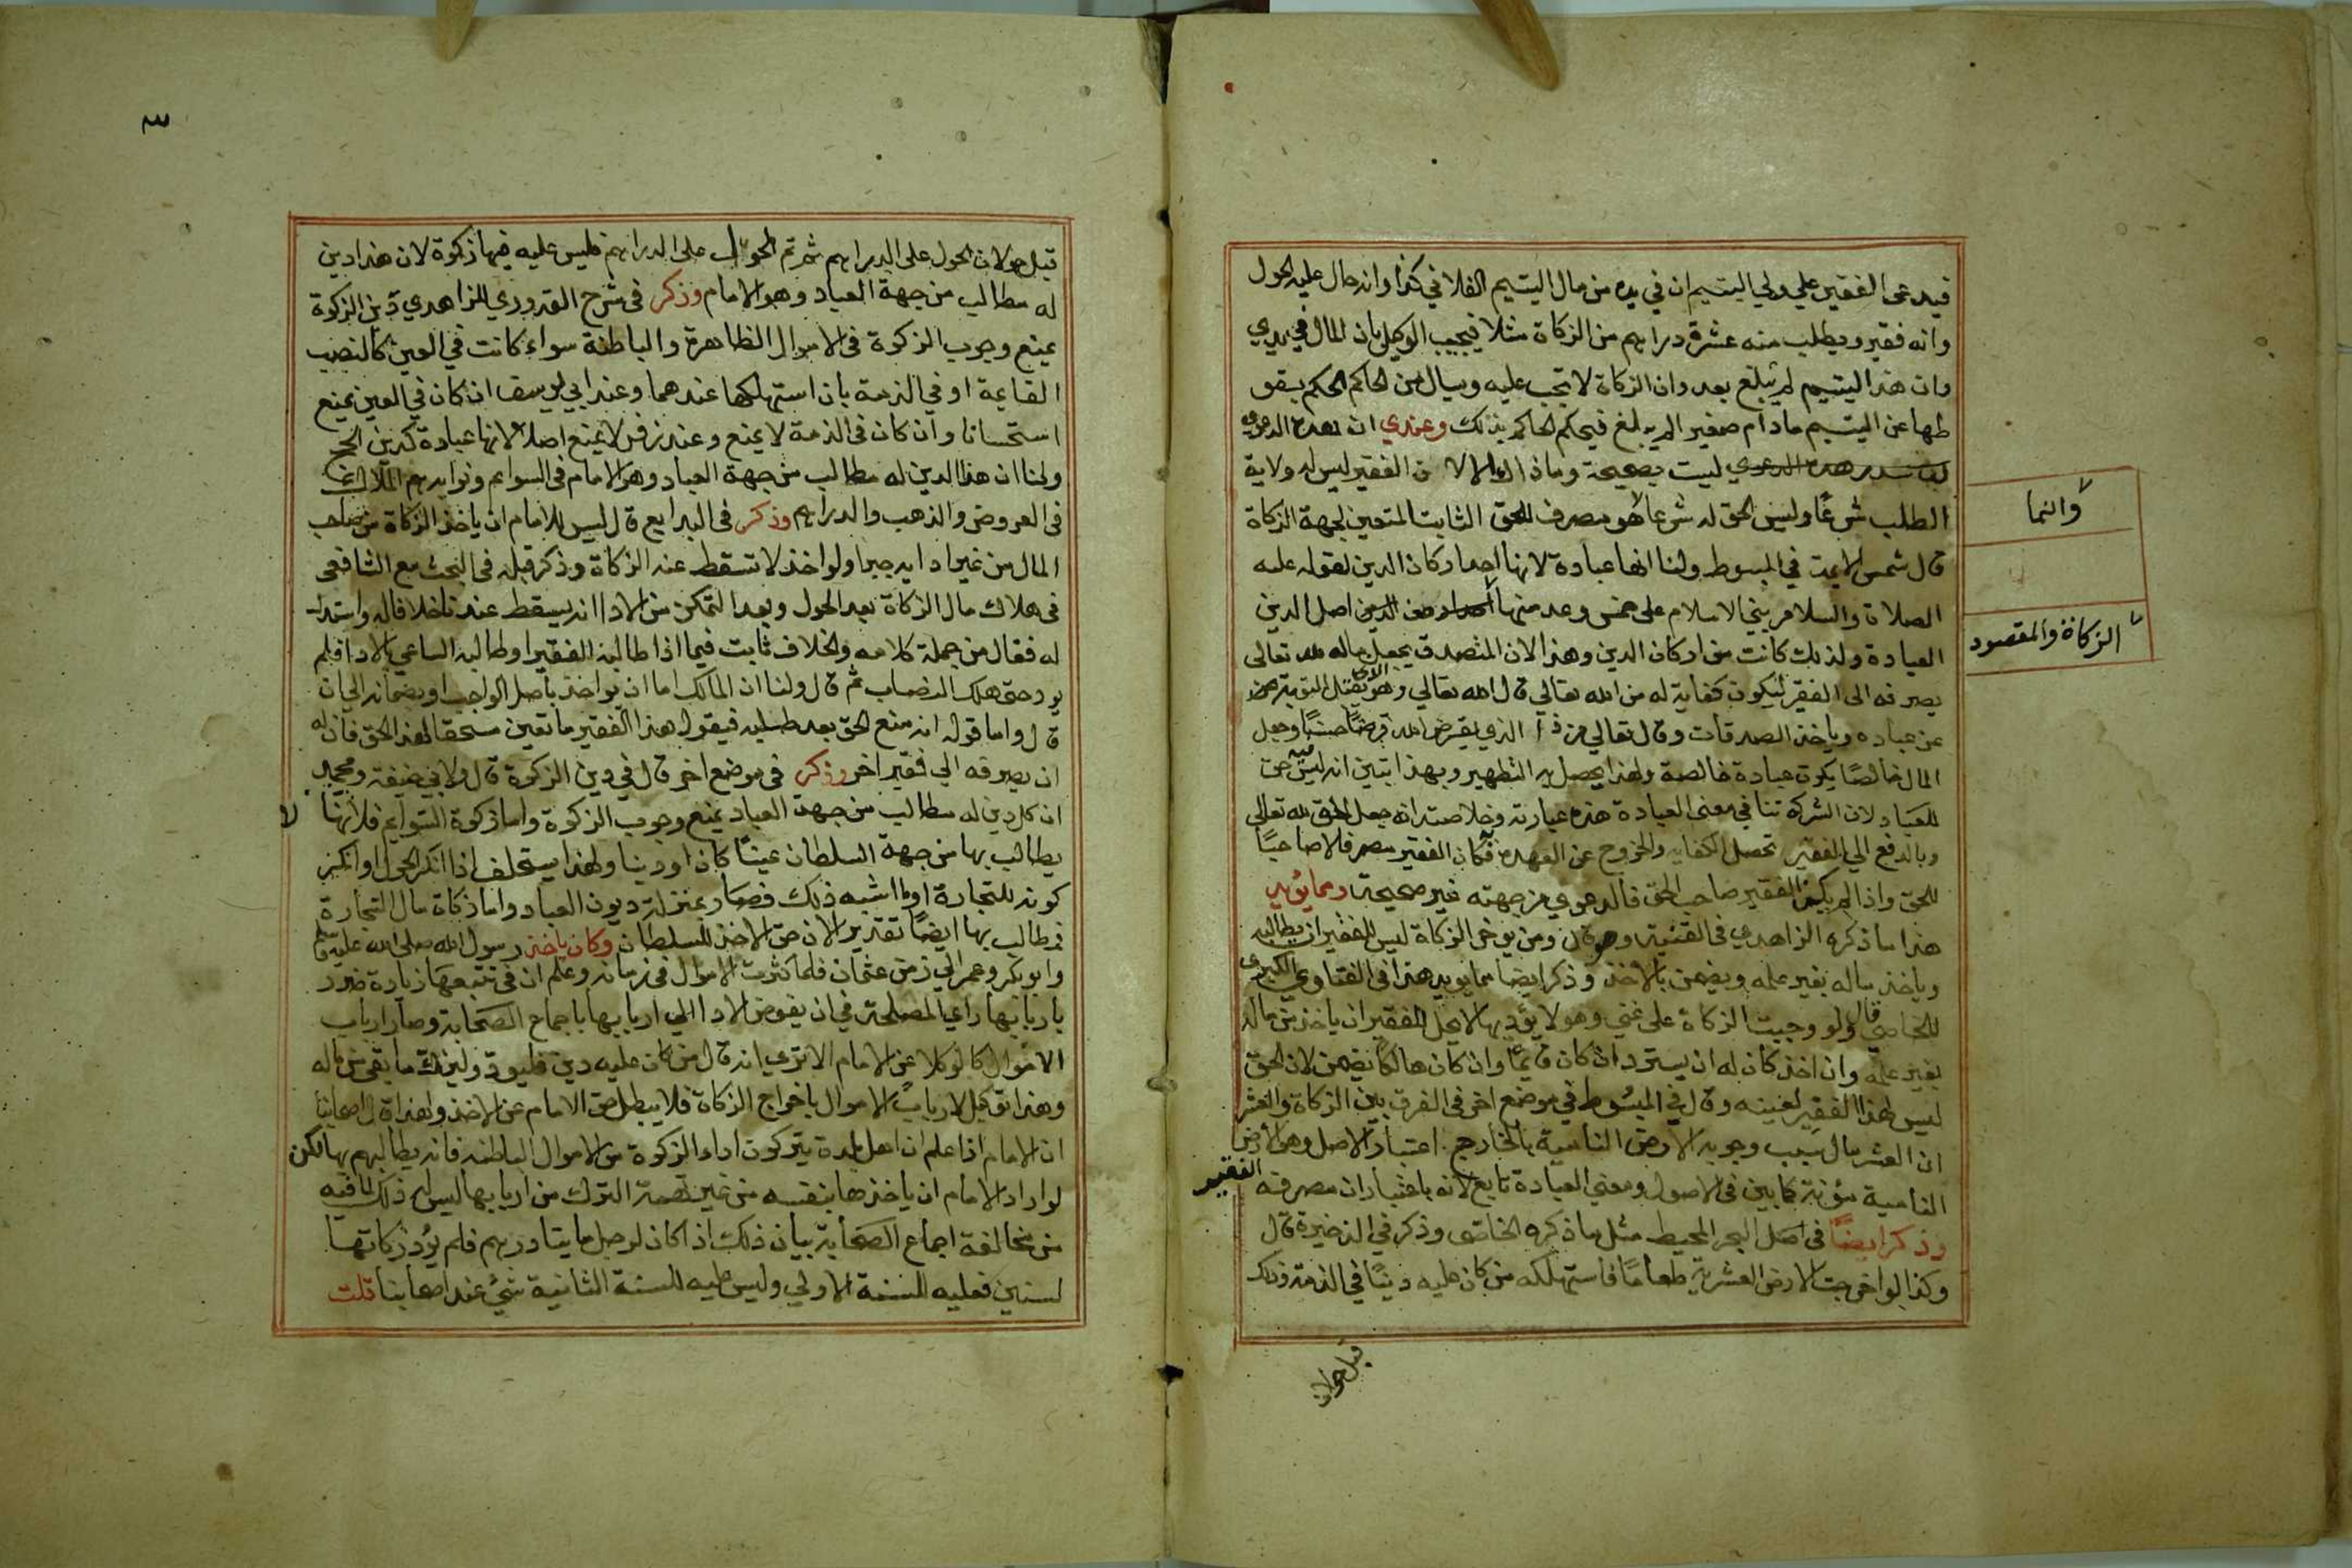 فيدعى الفقير علي ولي اليتيم ان في يده من مال اليتيم الفلاني كذا وانه حال عليه الحول
وانه فقير ويطلب منه عشرة دراهم من الزكاة مثلا فيجيب الوكيل بان المال في يدي
وان هذا اليتيم لم يبلغ بعد وان الزكاة لا تجب عليه وسال من الحاكم الحكم بسقو
طها عن اليتيم مادام صغير الم يبلغ فيحكم الحاكم بذلك وعندي ان هذه الدعوي
ليست بصحيحة وماذاك الا لان الفقير ليس له ولاية
الطلب شرعًا وليس الحق له شرعا وانما هو مصرف للحق الثابت المتعين لجهة الزكاة
قال شمس الايمة في المبسوط ولنا انها عبادة لانها احد اركان الدين لقوله عليه
الصلاة والسلام بني الاسلام على خمس وعد منها الزكاة والمقصود من اصل الدين
العبادة ولذلك كانت من اركان الدين وهذا لان المتصدق يجعل ماله لله تعالى
يصرفه الى الفقير ليكون كفاية له من الله تعالي قال الله تعالي وهو الذي يقبل التوبة
عن عباده وياخذ الصدقات وقال تعالي من ذا الذي يقرض الله قرضًا حسنًا وجعل
المال خالصًا يكون عبادة خالصة ولهذا يحصل به التطهير وبهذا تبين انه ليس فيه حق
للعباد لان الشركة تنافي معنى العبادة هذه عبارته وخلاصته انه جعل الحق لله تعالى
وبالدفع الي الفقير تحصل الكفاية والخروج عن العهدة فكان الفقير مصرفا لا صاحبًا
للحق واذا لم يكن الفقير صاحب الحق فالدعوي من جهته غير صحيحة ومما يؤيد
هذا ما ذكره الزاهدي في القنية وهو قال ومن يوخر الزكاة ليس للفقير ان يطالبه
وياخذ ماله بغير علمه ويضمن بالاخذ وذكر ايضا مما يويد هذا في الفتاوي الكبرى
للخاصي قال ولو وجبت الزكاة على غني وهو لا يؤديها لا يحل للفقير ان ياخذ من ماله
بغير علمه وان اخذ كان له ان يسترد ان كان قايمًا وان كان هالكا يضمن لان الحق
ليس لهذا الفقير لعينه وقال في المبسوط في موضع اخر في الفرق بين الزكاة والعشر
ان العشر مال سبب وجوبه الارض النامية بالخارج اعتبار الاصل وهو الارض
النامية مؤنة كما بين في الاصول ومعني العبادة تابع لانه باعتبار ان مصرفه الفقير
وذكر ايضًا في اصل البحر المحيط مثل ما ذكره الخاصي وذكر في الذخيرة قال
وكذا لو اخرجت الارض العشرية طعامًا فاستهلكه من كان عليه دينًا في الذمة وذلك
وانما
الزكاة والمقصود
قبل حولان
٣
قبل حولان الحول على الدراهم ثم تم الحول على الدراهم فليس عليه فيها زكوة لان هذا دين
له مطالب من جهة العباد وهو الامام وذكر في شرح القدوري للزاهدي دين الزكوة
يمنع وجوب الزكوة في الاموال الظاهرة والباطنة سواء كانت في العين كالنصب
القايمة او في الذمة بان استهلكها عندهما وعند ابي يوسف ان كان في العين يمنع
استحسانا وان كان في الذمة لا يمنع وعند زفر لا يمنع اصلا لانها عبادة كدين الحج
ولنا ان هذا الدين له مطالب من جهة العباد وهو الامام في السوايم ونوابه هم الملاك
في العروض والذهب والدراهم وذكر في البدايع قال ليس للامام ان ياخذ الزكاة من صاحب
المال من غير ادايه جبرا ولو اخذ لا تسقط عنه الزكاة وذكر قبله في البحث مع الشافعي
في هلاك مال الزكاة بعد الحول وبعد التمكن من الادا انه يسقط عندنا خلافا له واستدل
له فقال من جملة كلامه والخلاف ثابت فيما اذا طالبه الفقير او طالبه الساعي بالادا فلم
يود حتى هلك النصاب ثم قال ولنا ان المالك اما ان يواخذ باصل الواجب او بضمانه الى ان
قال واما قوله انه منع الحق بعد طلبه فيقول هذا الفقير ما تعين مستحقا لهذا الحق فان له
ان يصرفه الي فقير اخر وذكر في موضع اخر قال في دين الزكوة قال ولابي حنيفة ومحمد
ان كل دين له مطالب من جهة العباد يمنع وجوب الزكوة واما زكوة السوايم فلانها
يطالب بها من جهة السلطان عينًا كان او دينا ولهذا يستحلف اذا انكر الحول او انكر
كونه للتجارة او ما اشبه ذلك فصار بمنزلة ديون العباد واما زكاة مال التجارة
فيطالب بها ايضًا تقديرا لان حق الاخذ للسلطان وكان ياخذ رسول الله صلى الله عليه وسلم
وابو بكر وعمر الي زمن عثمان فلما كثرت الاموال في زمانه وعلم ان في تتبعها زيادة ضرر
باربابها راي المصلحة في ان يفوض الادا الي اربابها باجماع الصحابة وصار ارباب
الاموال كالوكلا عن الامام الا ترى انه قال من كان عليه دين فليوده وليزك ما بقي من ماله
وهذا توكيل لارباب الاموال باخراج الزكاة فلا يبطل حق الامام عن الاخذ ولهذا قال اصحابنا
ان الامام اذا علم ان اهل بلدة يتركون اداء الزكوة من الاموال الباطنه فانه يطالبهم بها لكن
لو اراد الامام ان ياخذها بنفسه من غير تهمة الترك من اربابها ليس له ذلك لما فيه
من مخالفة اجماع الصحابة بيان ذلك اذا كان لرجل مايتا درهم فلم يؤد زكاتها
لسنين فعليه للسنة الاولي وليس عليه للسنة الثانية شئ عند اصحابنا قلت